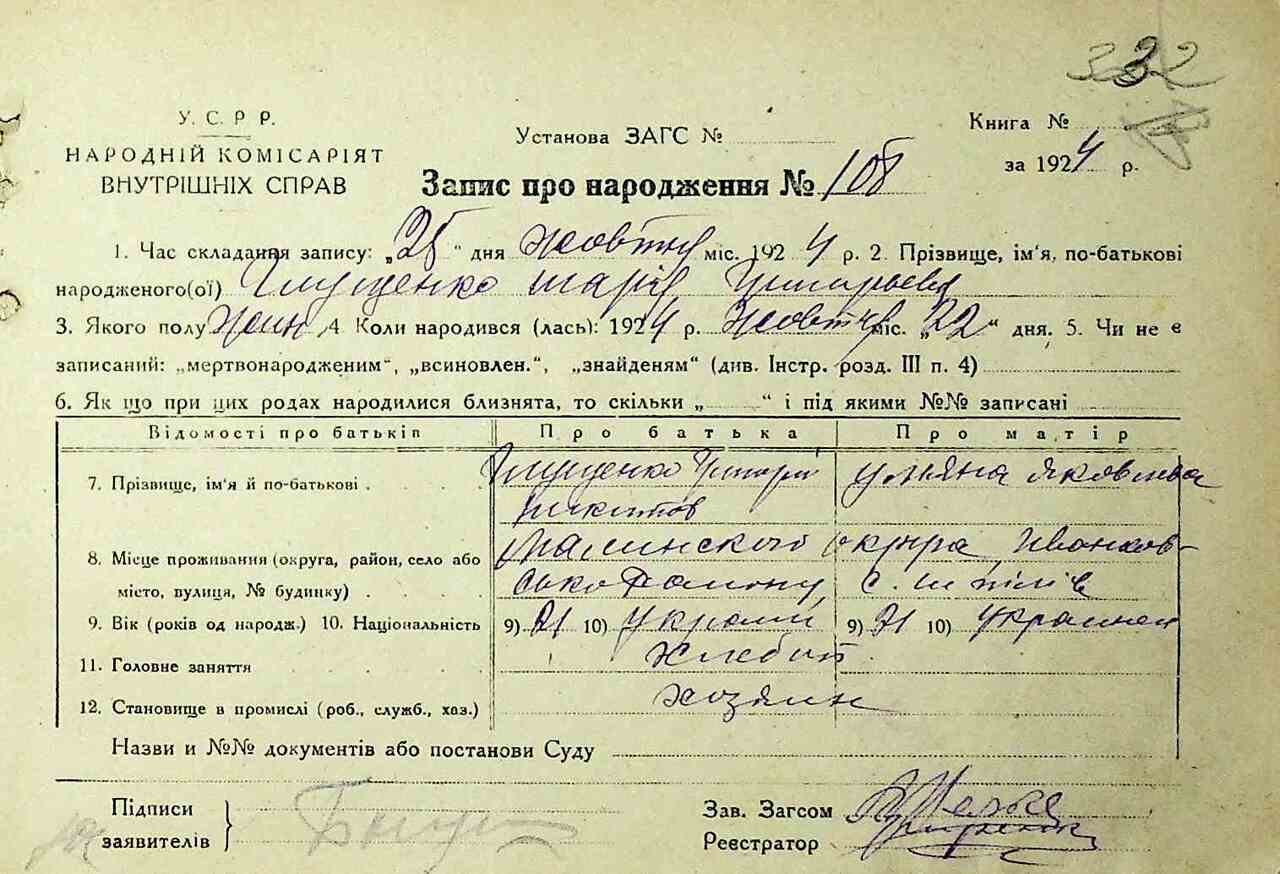 332
У. С. Р Р.
НАРОДНІЙ КОМІСАРІЯТ
ВНУТРІШНІХ СПРАВ
Установа ЗАГС №
Книга №
за 1924 р.
Запис про народження № 108
1. Час складання запису: „25" дня жовтня міс. 1924 р. 2. Прізвище, ім'я, по-батькові
народженого(ої) Глущенко Марія Григорьева
3. Якого полу жін. 4 Коли народився (лась): 1924 р. жовтня міс. „22" дня. 5. Чи не є
записаний: „мертвонародженим", „всиновлен.", „знайденям" (див. Інстр. розд. III п. 4)
6. Як що при цих родах народилися близнята, то скільки „ " і під якими №№ записані
Відомості про батьків Про батька Про матір
7. Прізвище, ім'я й по-батькові . Глущенко Григорій Ульяна Яковлева
Никитов
8. Місце проживання (округа, район, село або Малинского округа Иванков-
місто, вулиця, № будинку) . району, с.
9. Вік (років од народж.) 10. Національність 9) 21 10) 9) 21 10)
11. Головне заняття
12. Становище в промислі (роб., служб., хаз.) хозяин
Назви и №№ документів або постанови Суду
Підписи
заявителів
Зав. Загсом
Реєстратор